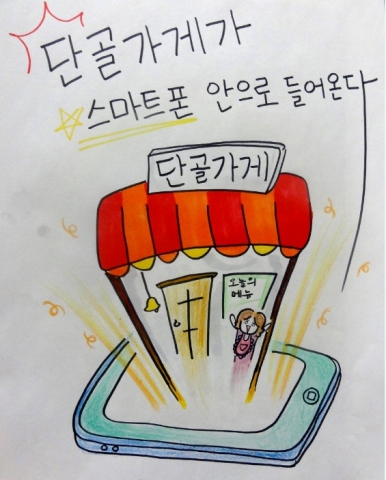 단골가게가
스마트폰 안으로 들어온다
단골가게
오늘의
메뉴